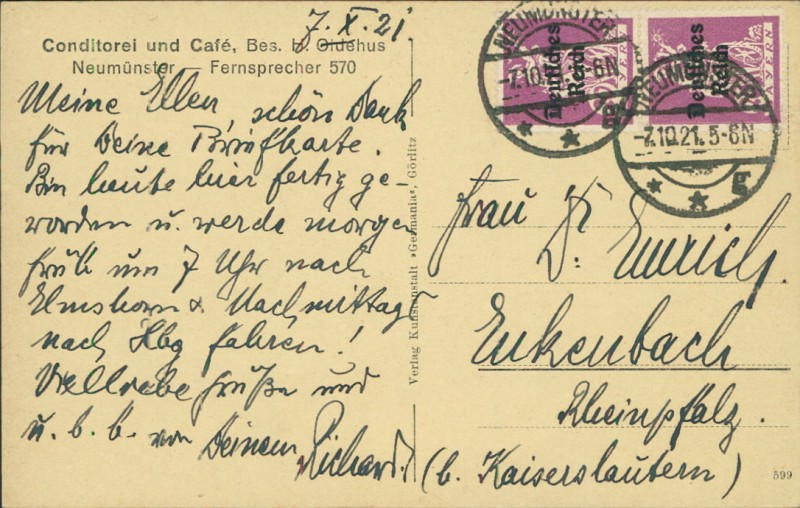 7. X. 21.
Conditorei und Café, Bes. H. Oldehus
Neumünster — Fernsprecher 570
Meine Ellen, schön Dank
für Deine Briefkarte.
Bin heute hier fertig ge-
worden u. werde morgen
früh um 7 Uhr nach
Elmshorn & Nachmittags
nach Hbg fahren!
Grüße und
u. b. b. von Deinem Richard.
Verlag Kunstanstalt »Germania«, Görlitz
NEUMÜNSTER
-7.10. 6N
Deutsches
Reich
BAYERN
Deutsches
Reich
BAYERN
NEUMÜNSTER
-7.10.21. 5-6N
g
Frau Dr. Emrich.
Enkenbach
Rheinpfalz.
(b. Kaiserslautern)
599